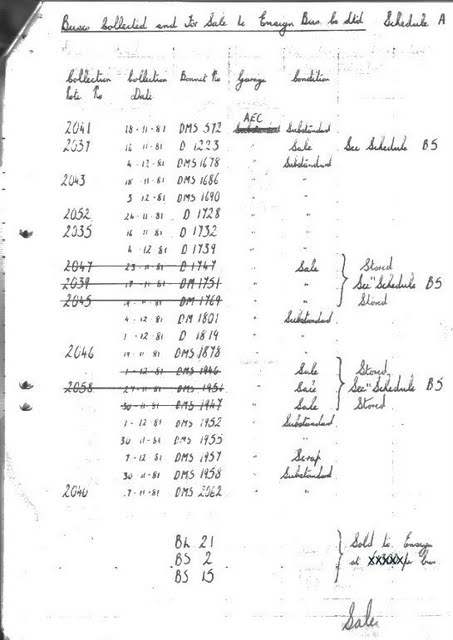 Buses Collected and For Sale to Ensign Bus Co Ltd Schedule A
Collection Note No Collection Date Bonnet No Garage Condition
AEC
2041 18-11-81 DMS 572 Substandard
2037 16 11-81 D 1223 " Sale See Schedule BS
4-12-81 DMS 1678 " Substandard
2043 18-11-81 DMS 1686 " "
3 12-81 DMS 1690 " "
2052 24-11-81 D 1728 " "
2035 16 11-81 D 1732 " "
4-12-81 D 1739 " "
2047 23-11-81 D 1747 " Sale Stored
2039 17-11-81 DM 1751 " " See" Schedule BS
2045 11-81 DM 1769 " " Stored
4-12-81 DM 1801 " Substandard
1-12-81 D 1819 " "
2046 19-11-81 DMS 1878 " "
1-12-81 DMS 1946 " Sale Stored
2058 27-11-81 DMS 1951 " Sale See" Schedule BS
30-11-81 DMS 1947 " Sale Stored
1-12-81 DMS 1952 " Substandard
30 11-81 DMS 1955 " "
7-12-81 DMS 1957 " Scrap
30 11-81 DMS 1958 " Substandard
2040 17-11-81 DMS 2062 " "
BL 21 Sold to Ensign
BS 2 at per bus
BS 15
Sale